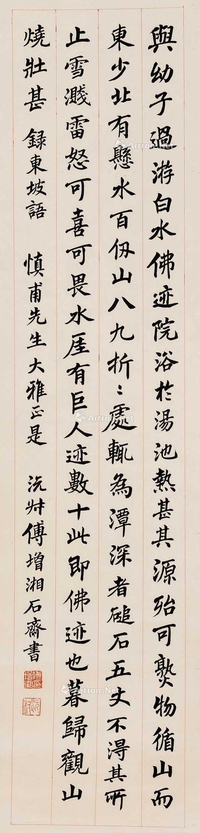 與幼子過游白水佛迹院浴於湯池熱甚其源殆可熟物循山而
東少北有懸水百仞山八九折〻處輒為潭深者磓石五丈不得其所
止雪濺雷怒可喜可畏水厓有巨人迹數十此即佛迹也暮歸觀山
燒壯甚 録東坡語 慎甫先生大雅正是 沅叔傅增湘石齋書